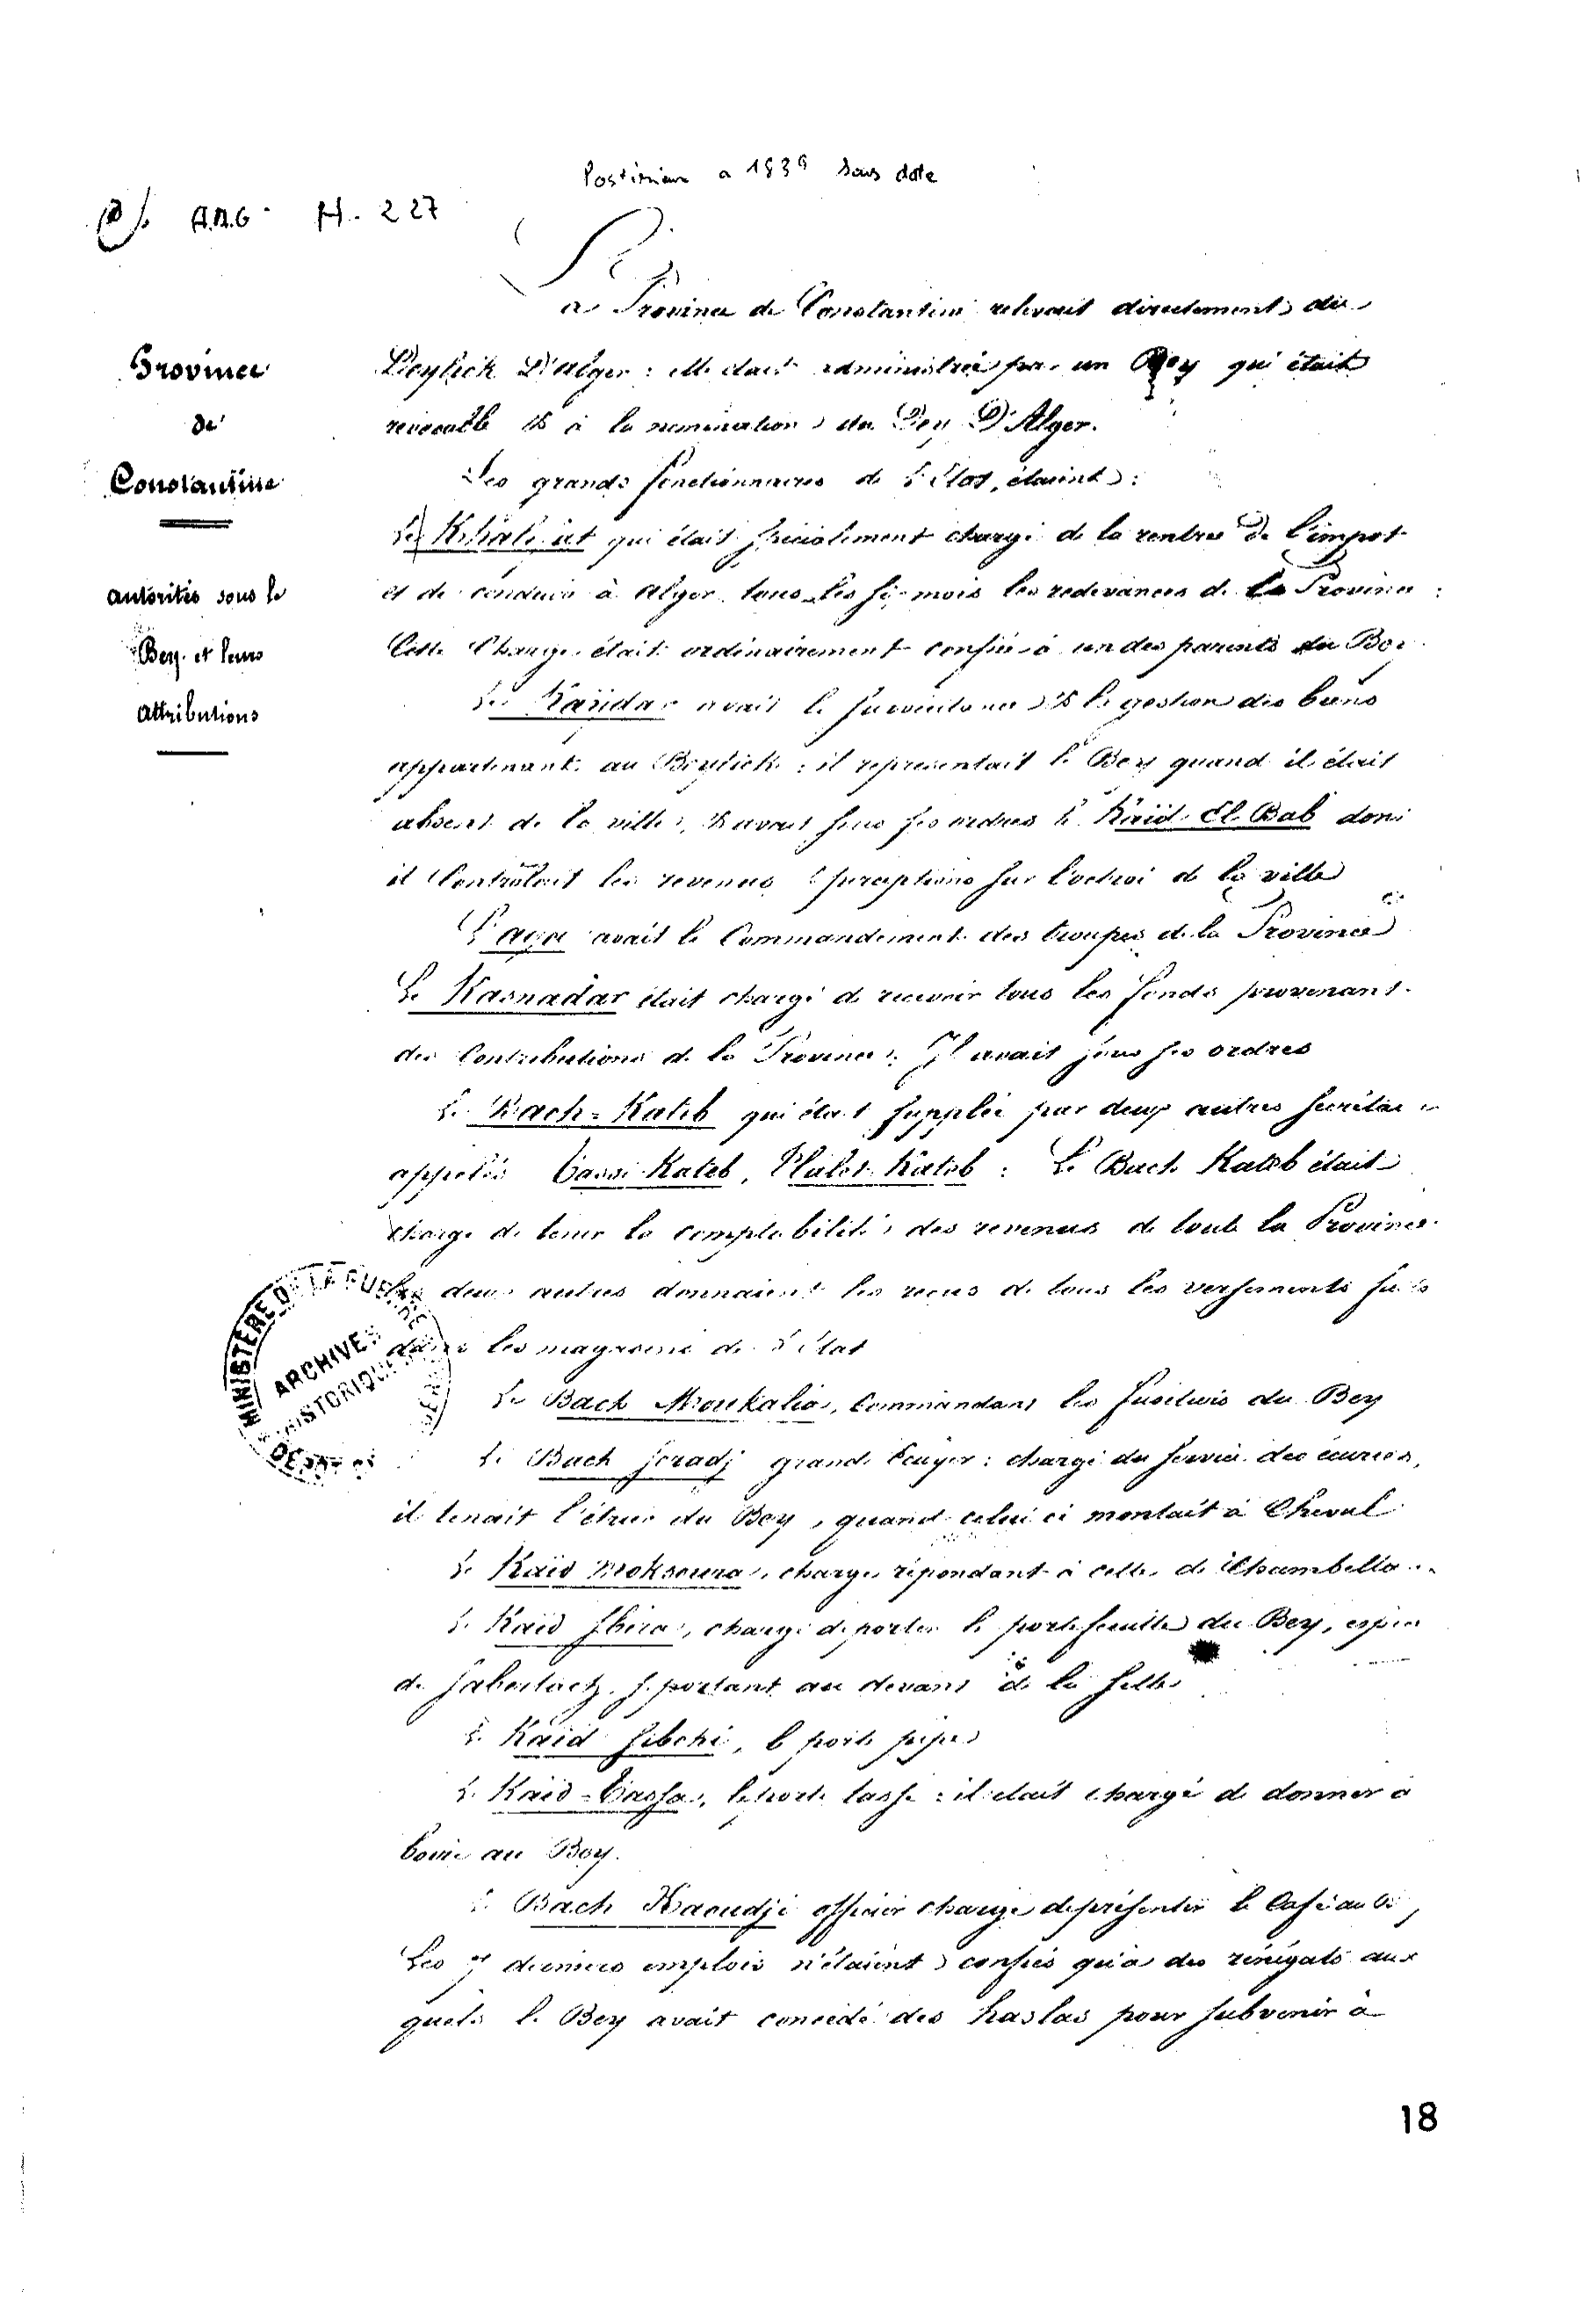 Postérieur a 1839 sans date
A.M.G. H. 227
Province
de
Constantine
autorités sous le
Bey et leurs
attributions
La Province de Constantine relevait directement du
Deylick D'alger : elle était administrée par un Bey qui était
revocable & à la nomination du Dey D'Alger.
Les grands fonctionnaires de l'Etat, étaient :
Le Khalifat qui était spécialement chargé de la rentrée de l'impot
et de conduire à alger tous les six mois les redevances de la Province :
Cette Charge était ordinairement confiée à un des parents du Bey.
Le Kaïjdar avait la surveillance & la gestion des biens
appartenant au Beylick : il représentait le Bey quand il était
absent de la ville, & avait sous ses ordres le Kaïd El Bab dont
il Contrôlait les revenus perceptions sur l'octroi de la ville
L'aga avait le Commandement des troupes de la Province
Le Kasnadar était chargé de recevoir tous les fonds provenant
des Contributions de la Province. Il avait sous ses ordres
Le Bach-Kateb qui était supplée par deux autres secrétaires
appelés Bassi Kateb, Kateb : Le Bach Kateb était
chargé de tenir la comptabilité des revenus de toute la Province.
Les deux autres donnaient les reçus de tous les versements faits
dans les magasins de l'état
Le Bach Moukalia, Commandant les fusiliers du Bey
Le Bach Seradj grand Ecuyer : chargé du service des écuries,
il tenait l'étrier du Bey, quand celui ci montait à Cheval
Le Kaïd Moksoura, charge répondant à celle de Chambellan
Le Kaïd Sbira, chargé de porter le portefeuille du Bey, espèce
de sabertach se portant au devant de la selle
Le Kaïd Sibchi, le porte pipes
Le Kaïd-Tassa, le porte tasse : il était chargé de donner à
boire au Bey.
Le Bach Kaoudji officier chargé de présenter le Café au
Les 7 derniers emplois n'étaient confiés qu'à des rénégats aux
quels le Bey avait concédé des haslas pour subvenir à
MINISTÈRE DE LA GUERRE
ARCHIVES
HISTORIQUES
18